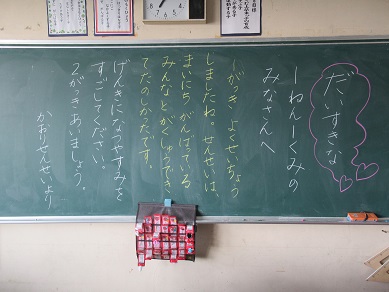 だいすきな
一ねん一くみの
みなさんへ
一がっき よくせいちょう
しましたね。せんせいは、
まいにち がんばっている
みんなとがくしゅうでき、
てたのしかたです。
げんきになつやすみを
すごしてください。
2がっきあいましょう。
かおりせんせいより